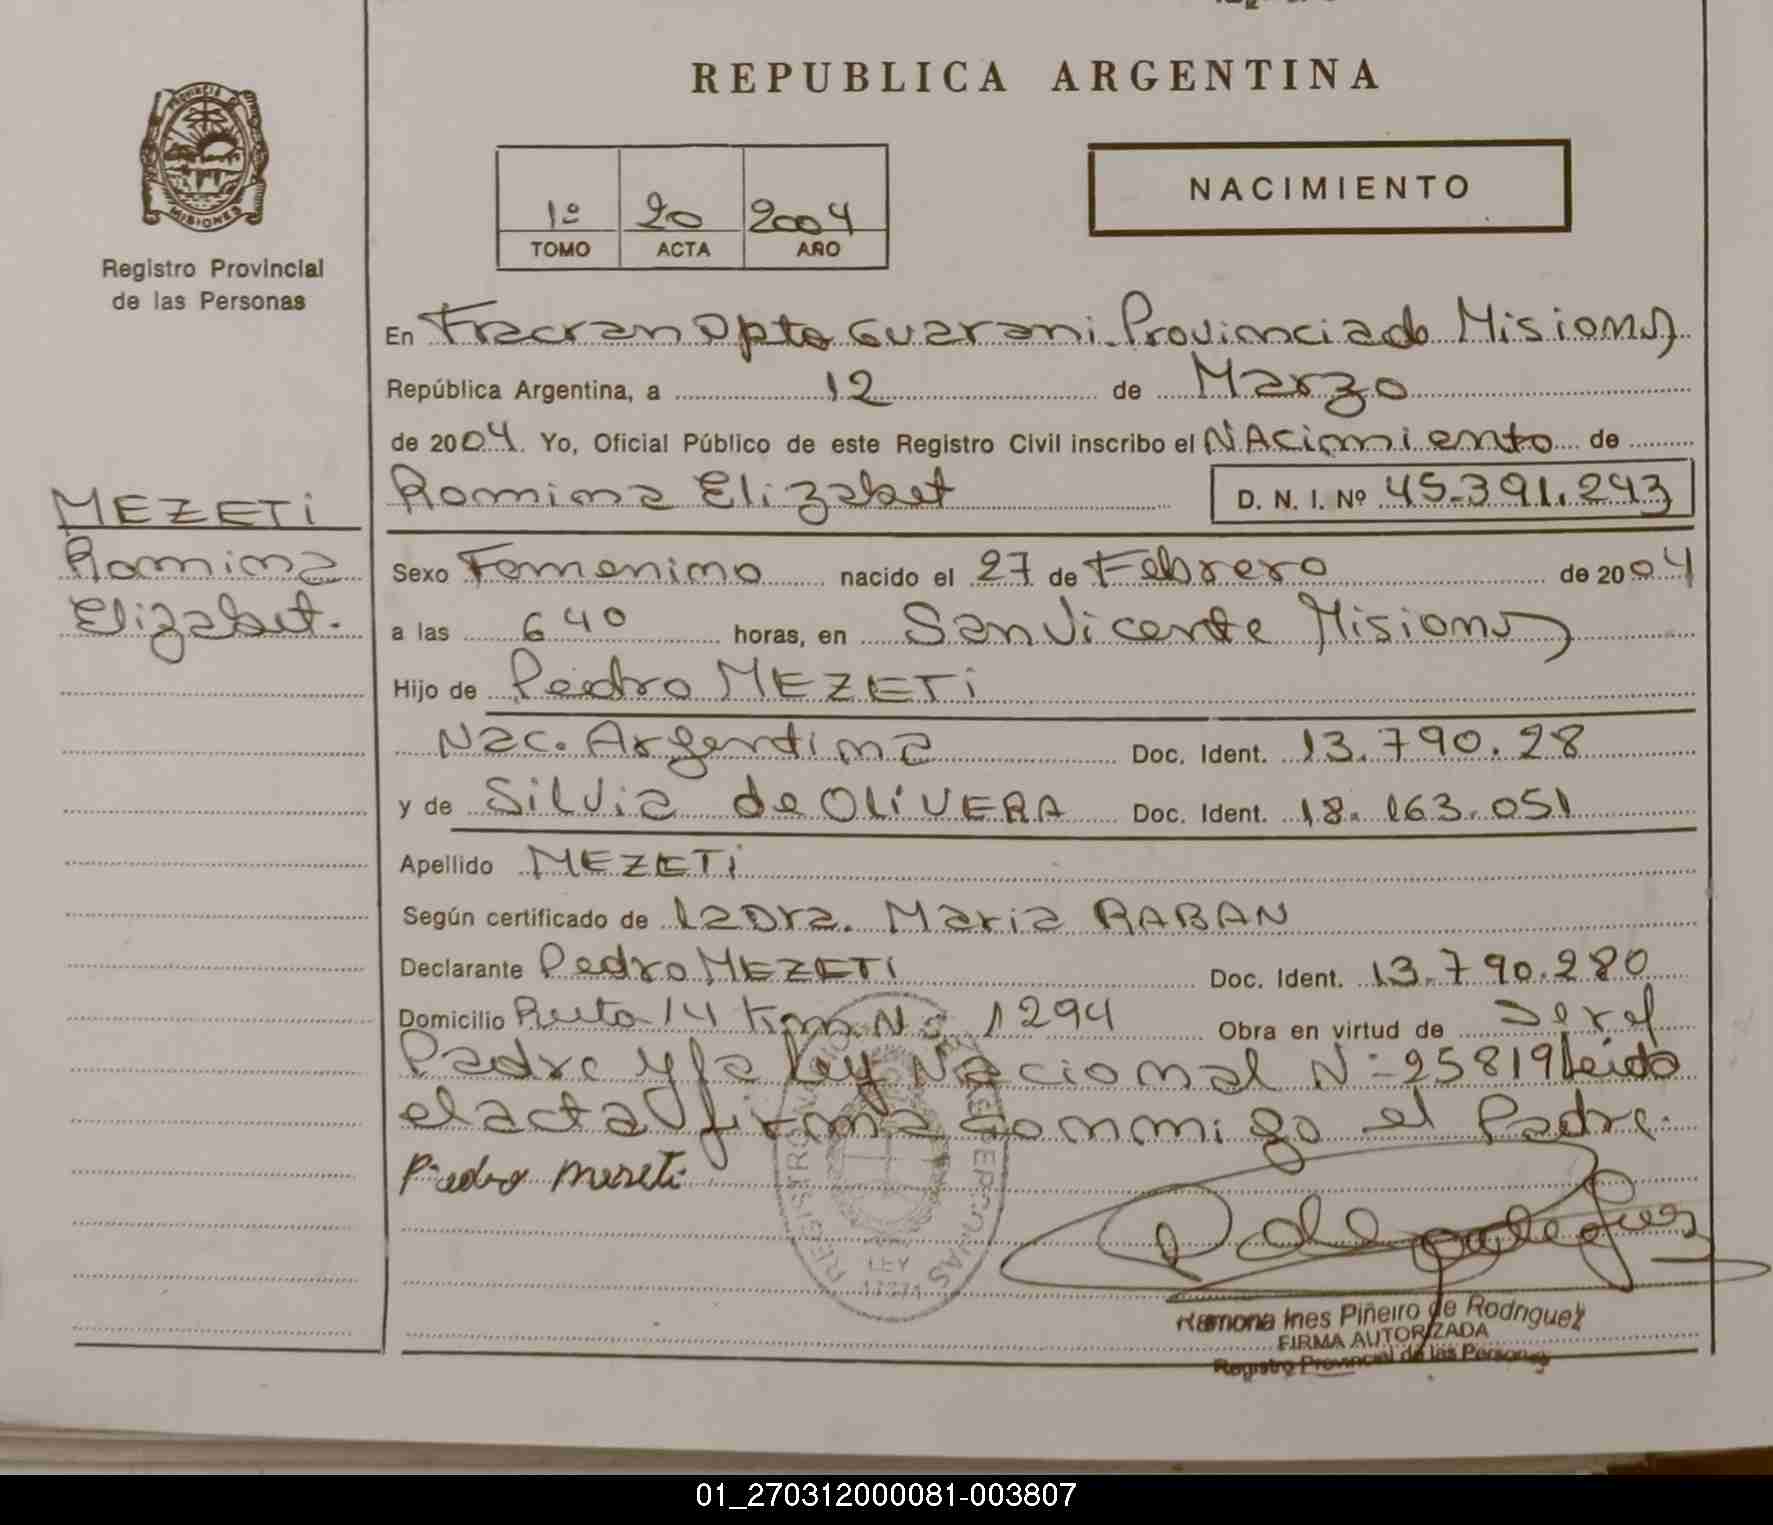 REPUBLICA ARGENTINA
PROVINCIA D
MISIONES
Registro Provincial
de las Personas
1º 20 2004
TOMO ACTA AÑO
NACIMIENTO
En Fracran Dpto Guarani Provincia de Misiones
República Argentina, a 12 de Marzo
de 2004. Yo, Oficial Público de este Registro Civil inscribo el NAcimiento de
Romina Elizabet D. N. I. Nº 45.391.243
MEZETi
Romina
Elizabet.
Sexo Femenino nacido el 27 de Febrero de 2004
a las 6 40 horas, en San Vicente Misiones
Hijo de Pedro MEZETi
Nac. Argentina Doc. Ident. 13.790.28
y de SiLVia de OLiVERA Doc. Ident. 18.163.051
Apellido MEZETi
Según certificado de la Dra. Maria RABAN
Declarante Pedro MEZETi Doc. Ident. 13.790.280
Domicilio Ruta 14 Km Nº 1294 Obra en virtud de ser el
Padre y la Ley Nacional Nº 25819 Leida
el acta firma conmigo el Padre.
Pedro Mezeti
REGISTRO NACIONAL DE LAS PERSONAS
LEY
17671
Ramona Ines Piñeiro de Rodriguez
FIRMA AUTORIZADA
Registro Provincial de las Personas
01_270312000081-003807